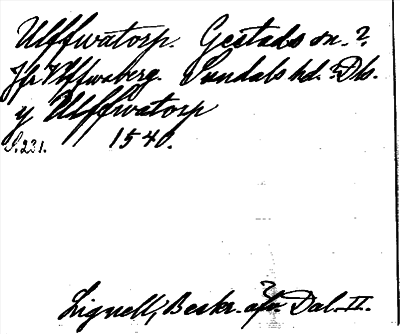 Ulffwatorp. Gestads sn.?
Jfr Ulfwaberg. Sundals hd. Dls.
y Ulffwatorp
S. 231. 1540.
Lignell, Beskr. öfv. Dal. II.